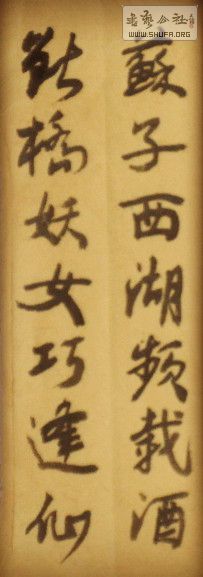 書藝公社
WWW.SHUFA.ORG
蘇子西湖頻載酒
斷橋妖女巧逢仙